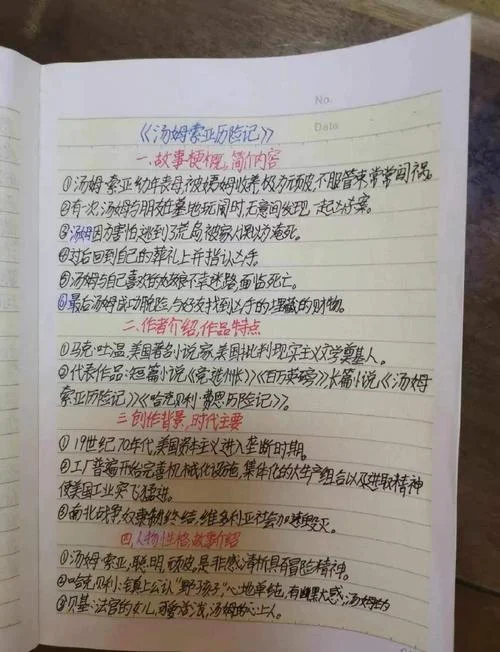 No.
Date
《汤姆索亚历险记》
一.故事梗概,简介内容
①汤姆·索亚幼年丧母,被姨姆收养.极为顽皮,不服管束常常闯祸。
②有一次,汤姆与朋友在墓地玩闹时,无意间发现一起凶杀案。
③汤姆因为害怕逃到了荒岛,被家人误以为淹死。
④过后回到自己的葬礼上并指认凶手。
⑤汤姆与自己喜欢的姑娘不幸迷路,面临死亡。
⑥最后汤姆成功脱险,与好友找到凶手的埋藏的财物。
二、作者介绍,作品特点
①马克·吐温,美国著名小说家,美国批判现实主义文学奠基人。
②代表作品:短篇小说《竞选州长》《百万英磅》长篇小说《汤姆
索亚历险记》《哈克贝利·费恩历险记》。
三 创作背景,时代主要
①19世纪70年代,美国资本主义进入垄断时期。
②工厂普遍开始完善机械化设施,集体化的大生产组合以及进取精神
使美国工业突飞猛进。
③南北战争,奴隶制终结,维多利亚社会加速毁灭。
四,人物性格,故事介绍
①汤姆·索亚,聪明,顽皮,是非感清晰具有冒险精神。
②哈克贝利:镇上公认"野孩子"心地单纯,有幽默感,汤姆的
③贝基:法官的女儿,可爱活泼,汤姆的心上人。
Date